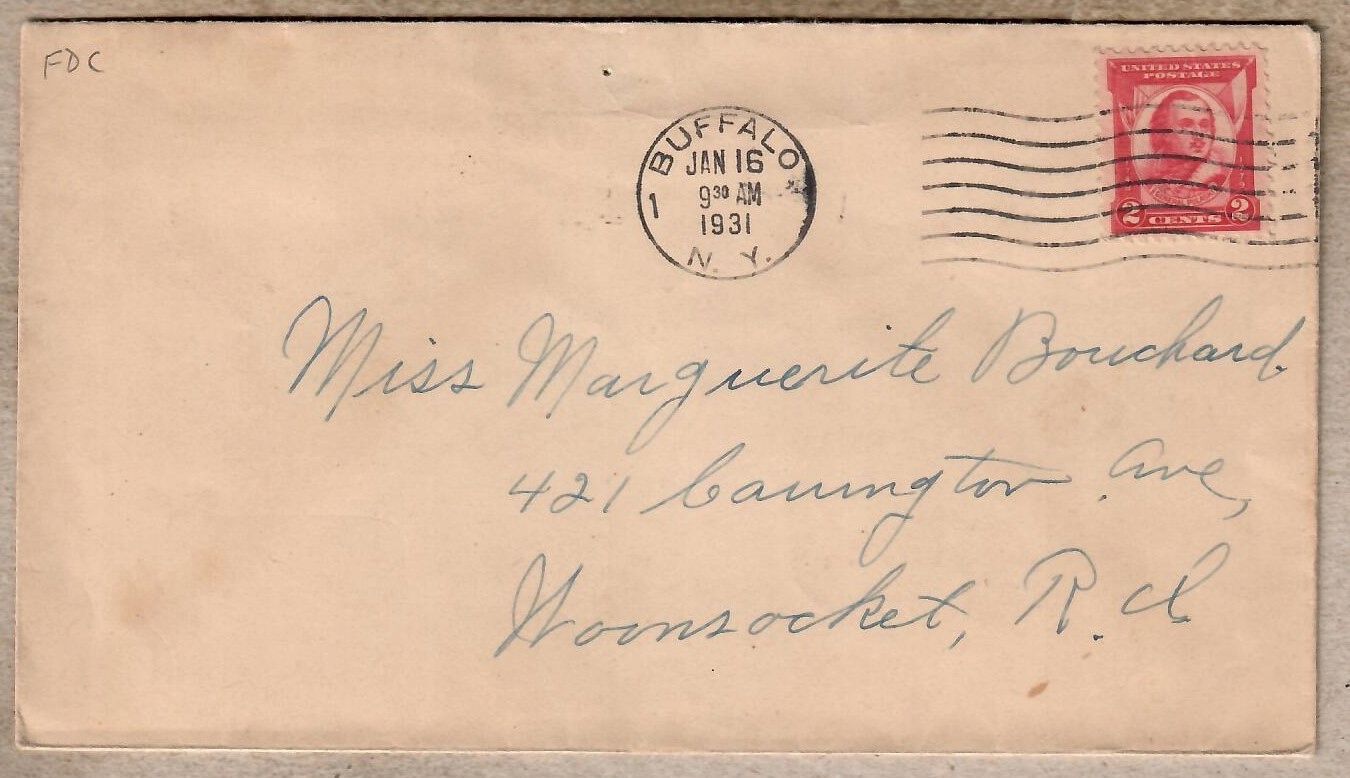 FDC
BUFFALO
JAN 16
9 30 AM
1931
1
N. Y.
UNITED STATES
POSTAGE
2 CENTS 2
Miss Marguerite Bouchard
421 Carrington Ave,
Woonsocket, R. I.